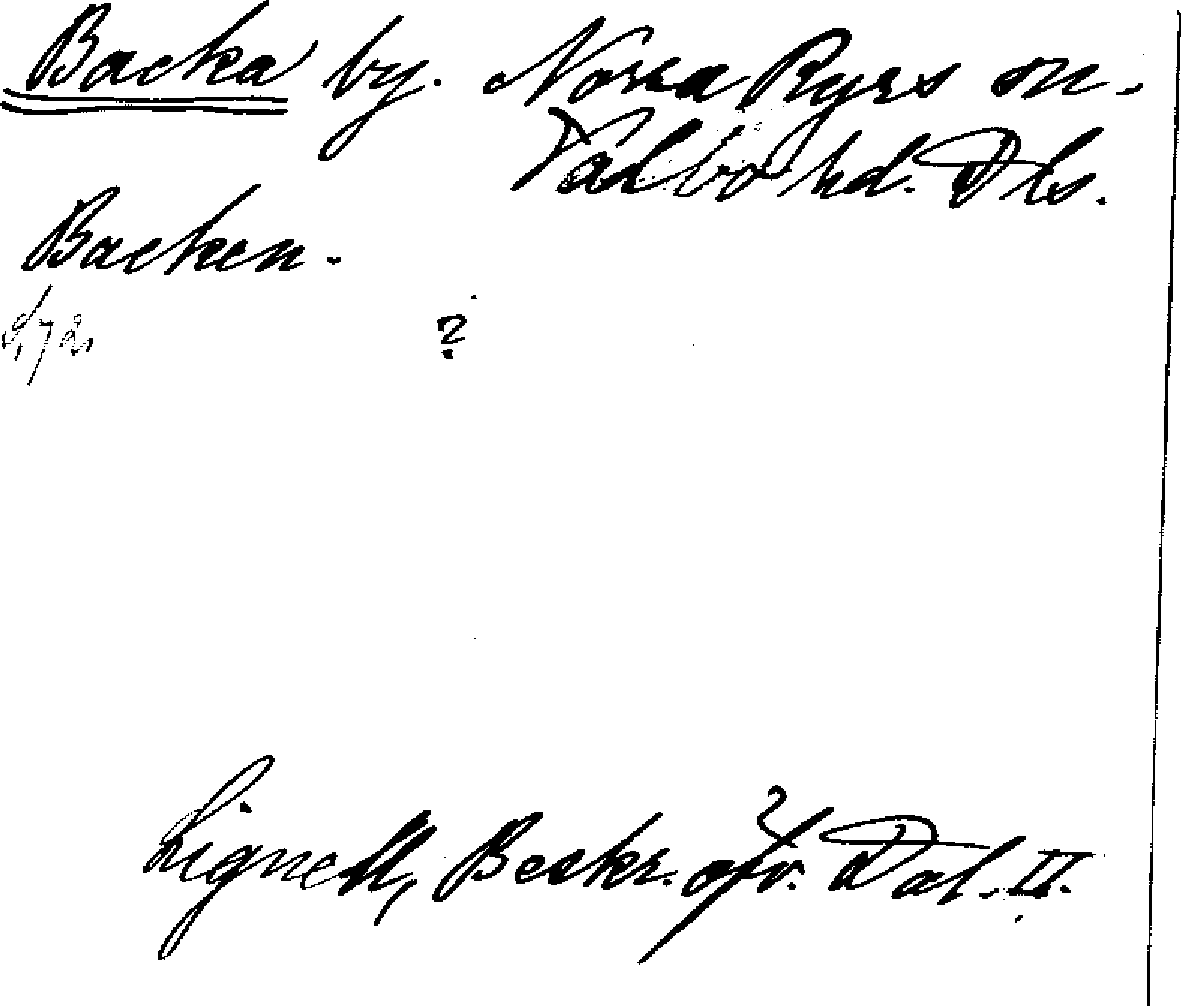 Backa by. Norra Ryrs sn.
Valbo hd. Dls.
Backen.
S, 72
?
Lignell, Beskr. öfv. Dal. II.